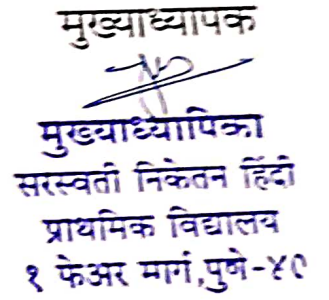 मुख्याध्यापक
मुख्याध्यापिका
सरस्वती निकेतन हिंदी
प्राथमिक विद्यालय
१ फेअर मार्ग,पुणे-४९